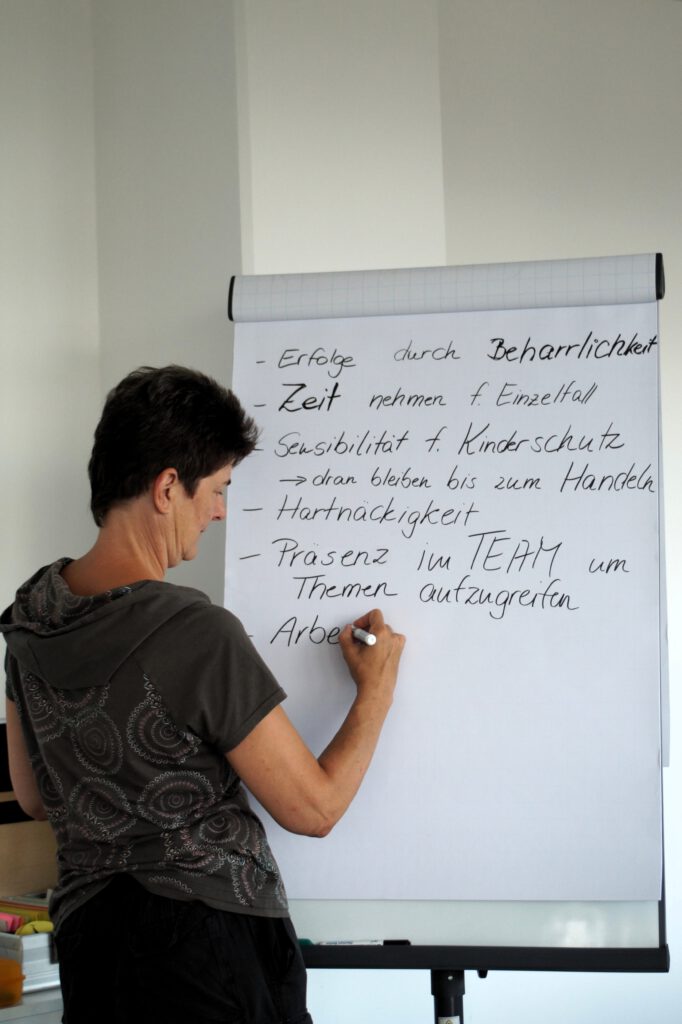 - Erfolge durch Beharrlichkeit
- Zeit nehmen f. Einzelfall
- Sensibilität f. Kinderschutz
→ dran bleiben bis zum Handeln
- Hartnäckigkeit
- Präsenz im TEAM um
Themen aufzugreifen
- Arbe